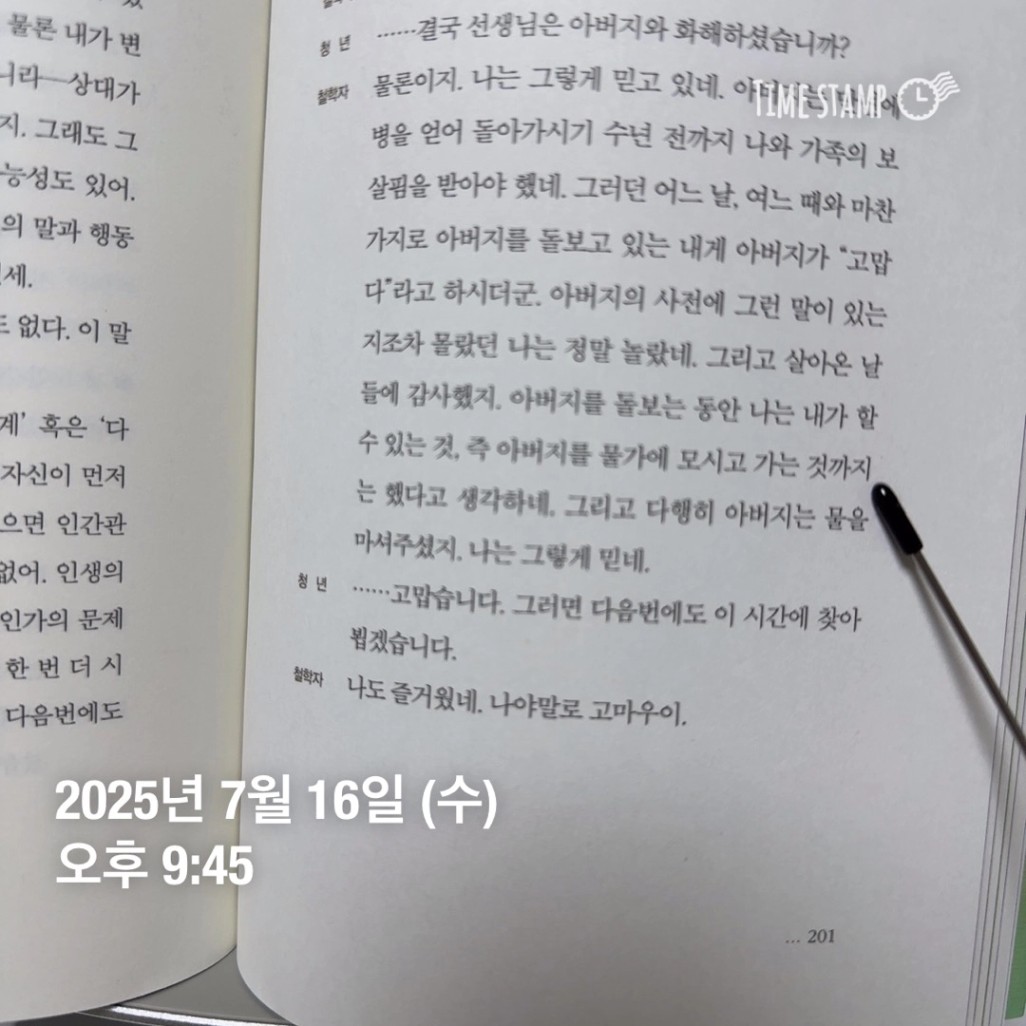 물론 내가 변
니라—상대가
지. 그래도 그
능성도 있어.
의 말과 행동
세.
도 없다. 이 말
계’ 혹은 ‘다
자신이 먼저
으면 인간관
없어. 인생의
인가의 문제
한 번 더 시
다음번에도
청년 ……결국 선생님은 아버지와 화해하셨습니까?
철학자 물론이지. 나는 그렇게 믿고 있네.
병을 얻어 돌아가시기 수년 전까지 나와 가족의 보
살핌을 받아야 했네. 그러던 어느 날, 여느 때와 마찬
가지로 아버지를 돌보고 있는 내게 아버지가 “고맙
다”라고 하시더군. 아버지의 사전에 그런 말이 있는
지조차 몰랐던 나는 정말 놀랐네. 그리고 살아온 날
들에 감사했지. 아버지를 돌보는 동안 나는 내가 할
수 있는 것, 즉 아버지를 물가에 모시고 가는 것까지
는 했다고 생각하네. 그리고 다행히 아버지는 물을
마셔주셨지. 나는 그렇게 믿네.
청년 ……고맙습니다. 그러면 다음번에도 이 시간에 찾아
뵙겠습니다.
철학자 나도 즐거웠네. 나야말로 고마우이.
… 201
TIME STAMP
2025년 7월 16일 (수)
오후 9:45